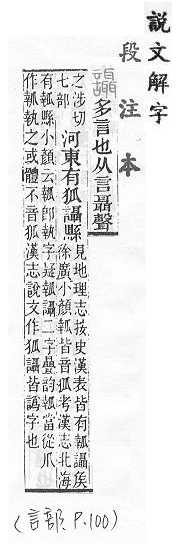 說文解字
段注本
多言也从言聶聲
之涉切
七部
河東有狐讘縣
見地理志按史漢表皆有瓡讘矦
徐廣小顏瓡皆音狐考漢志北海
有瓡縣小顏云瓡卽執字疑瓡讘二字疊韵瓡當從爪
作瓡執之或體不音狐漢志說文作狐讘皆譌字也
(言部 P.100)